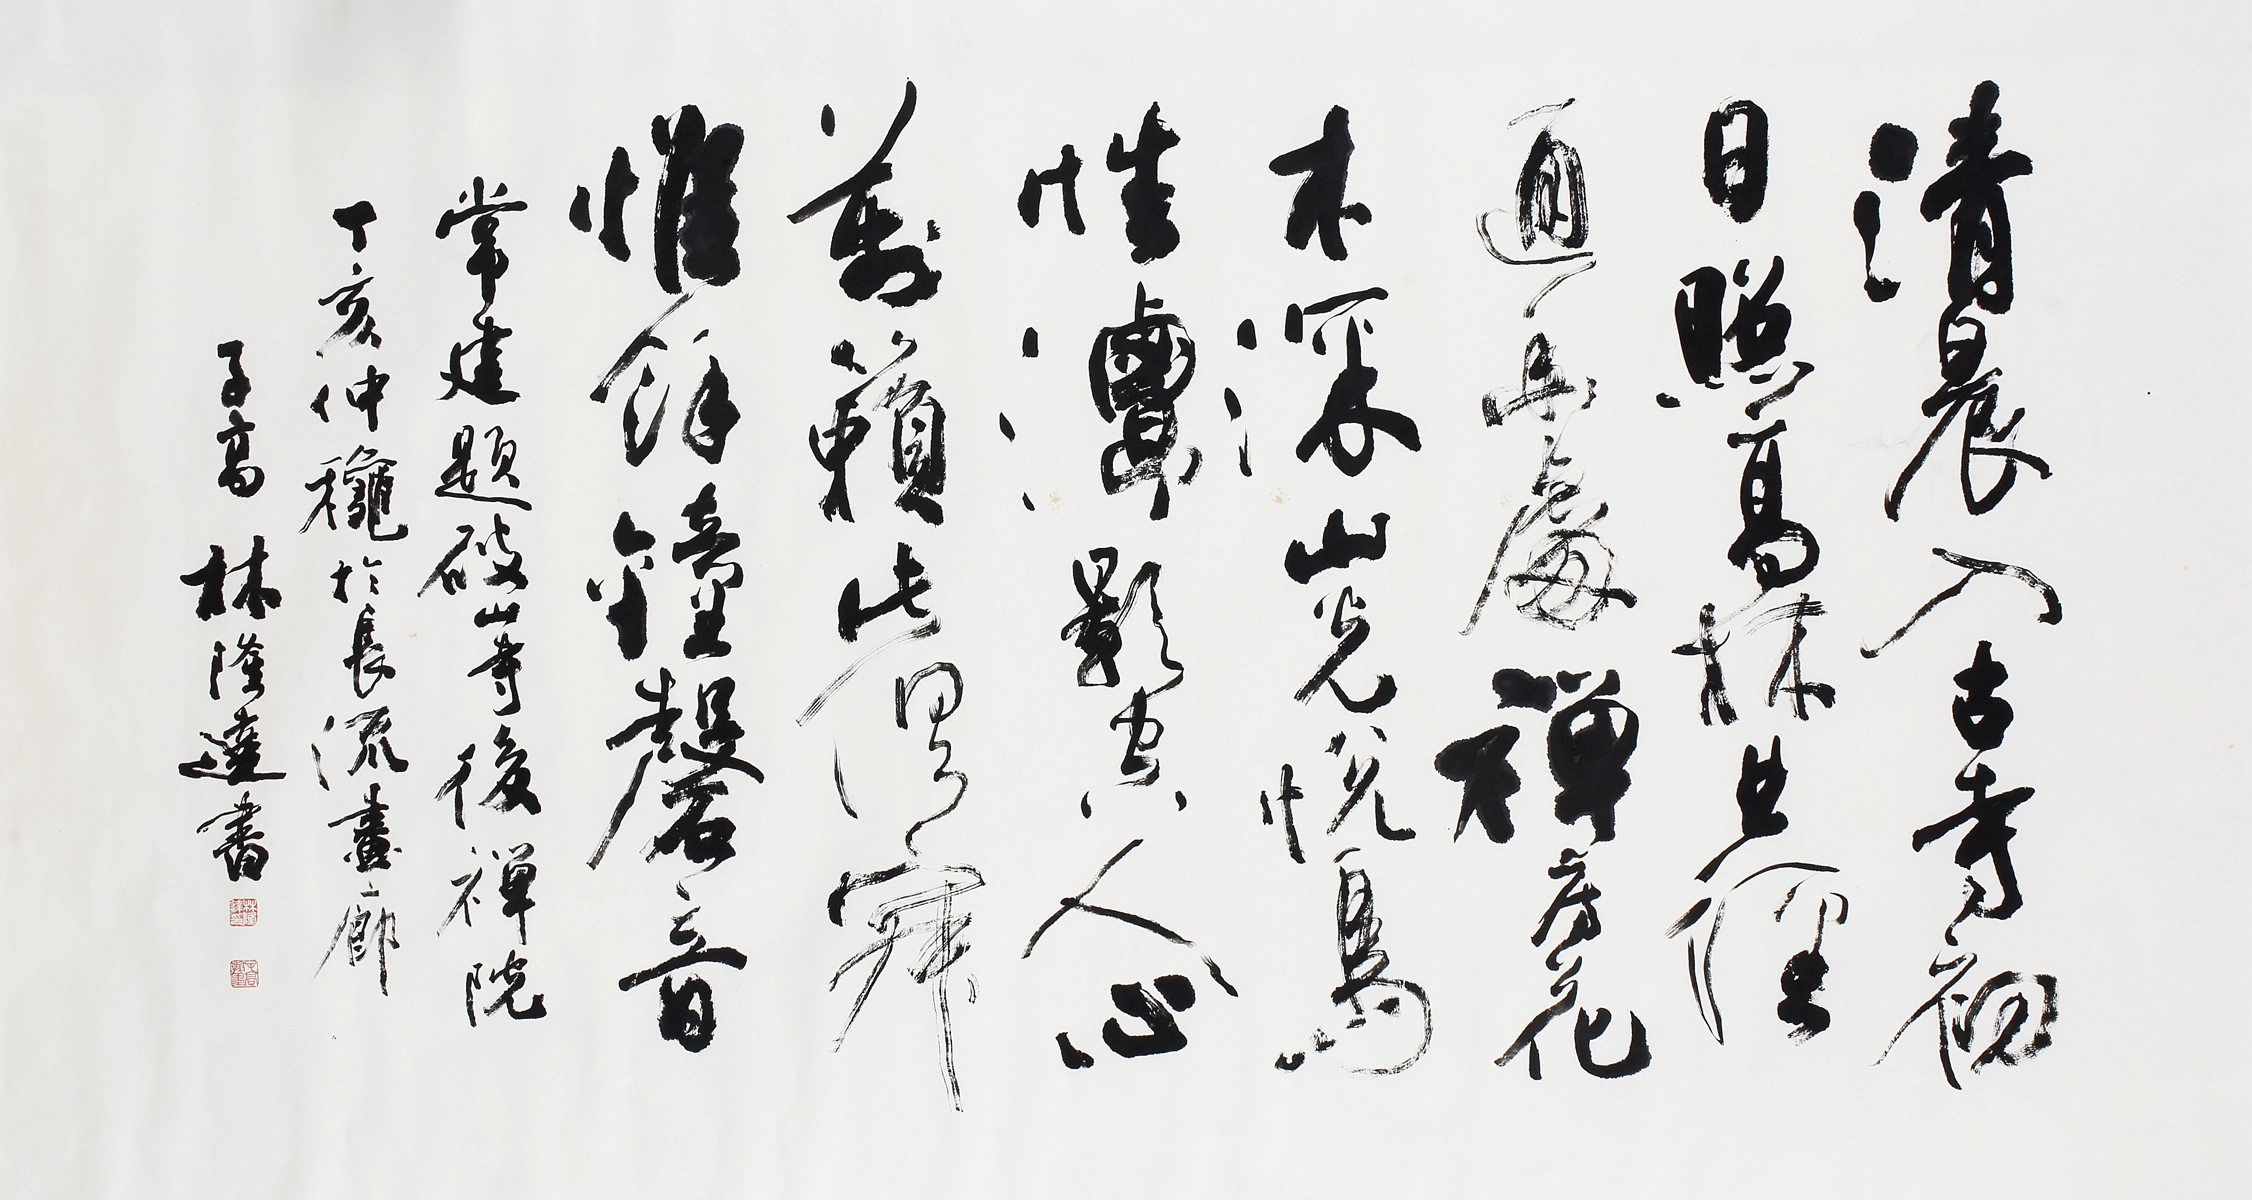 清晨入古寺初
日照高林曲徑
通幽處禪房花
木深山光悅鳥
性潭影空人心
萬籟此俱寂
惟餘鐘磬音
常建題破山寺後禪院
丁亥仲穐於長流畫廊
子高 林隆達書